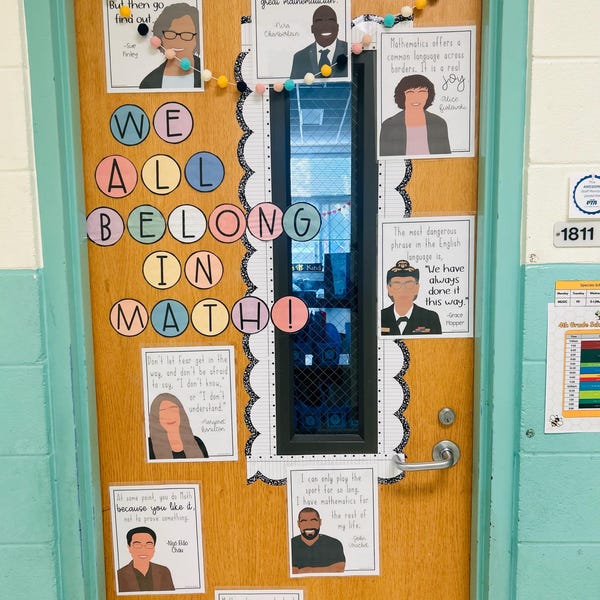 But then go
find out.
-Sue
Finley
great mathematician."
-Nira
Chamberlain
Mathematics offers a
common language across
borders. It is a real
joy
-Alice
WE
ALL
BELONG
IN
MATH!
The most dangerous
phrase in the English
language is,
"We have
always
done it
this way."
-Grace
Hopper
1811
4th Grade
Don't let fear get in the
way, and don't be afraid
to say, "I don't know,
or "I don't
understand."
-Margaret
Hamilton
I can only play the
sport for so long.
I have mathematics for
the rest of
my life.
-John
Urschel
At some point, you do Math
because you like it,
not to prove something.
-Ngo Bảo
Châu